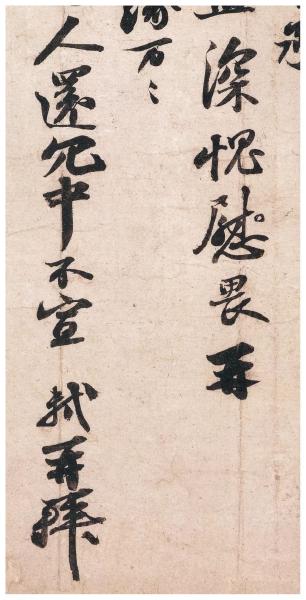 深愧慰畏再
万〻
人還冗中不宣 軾再拜